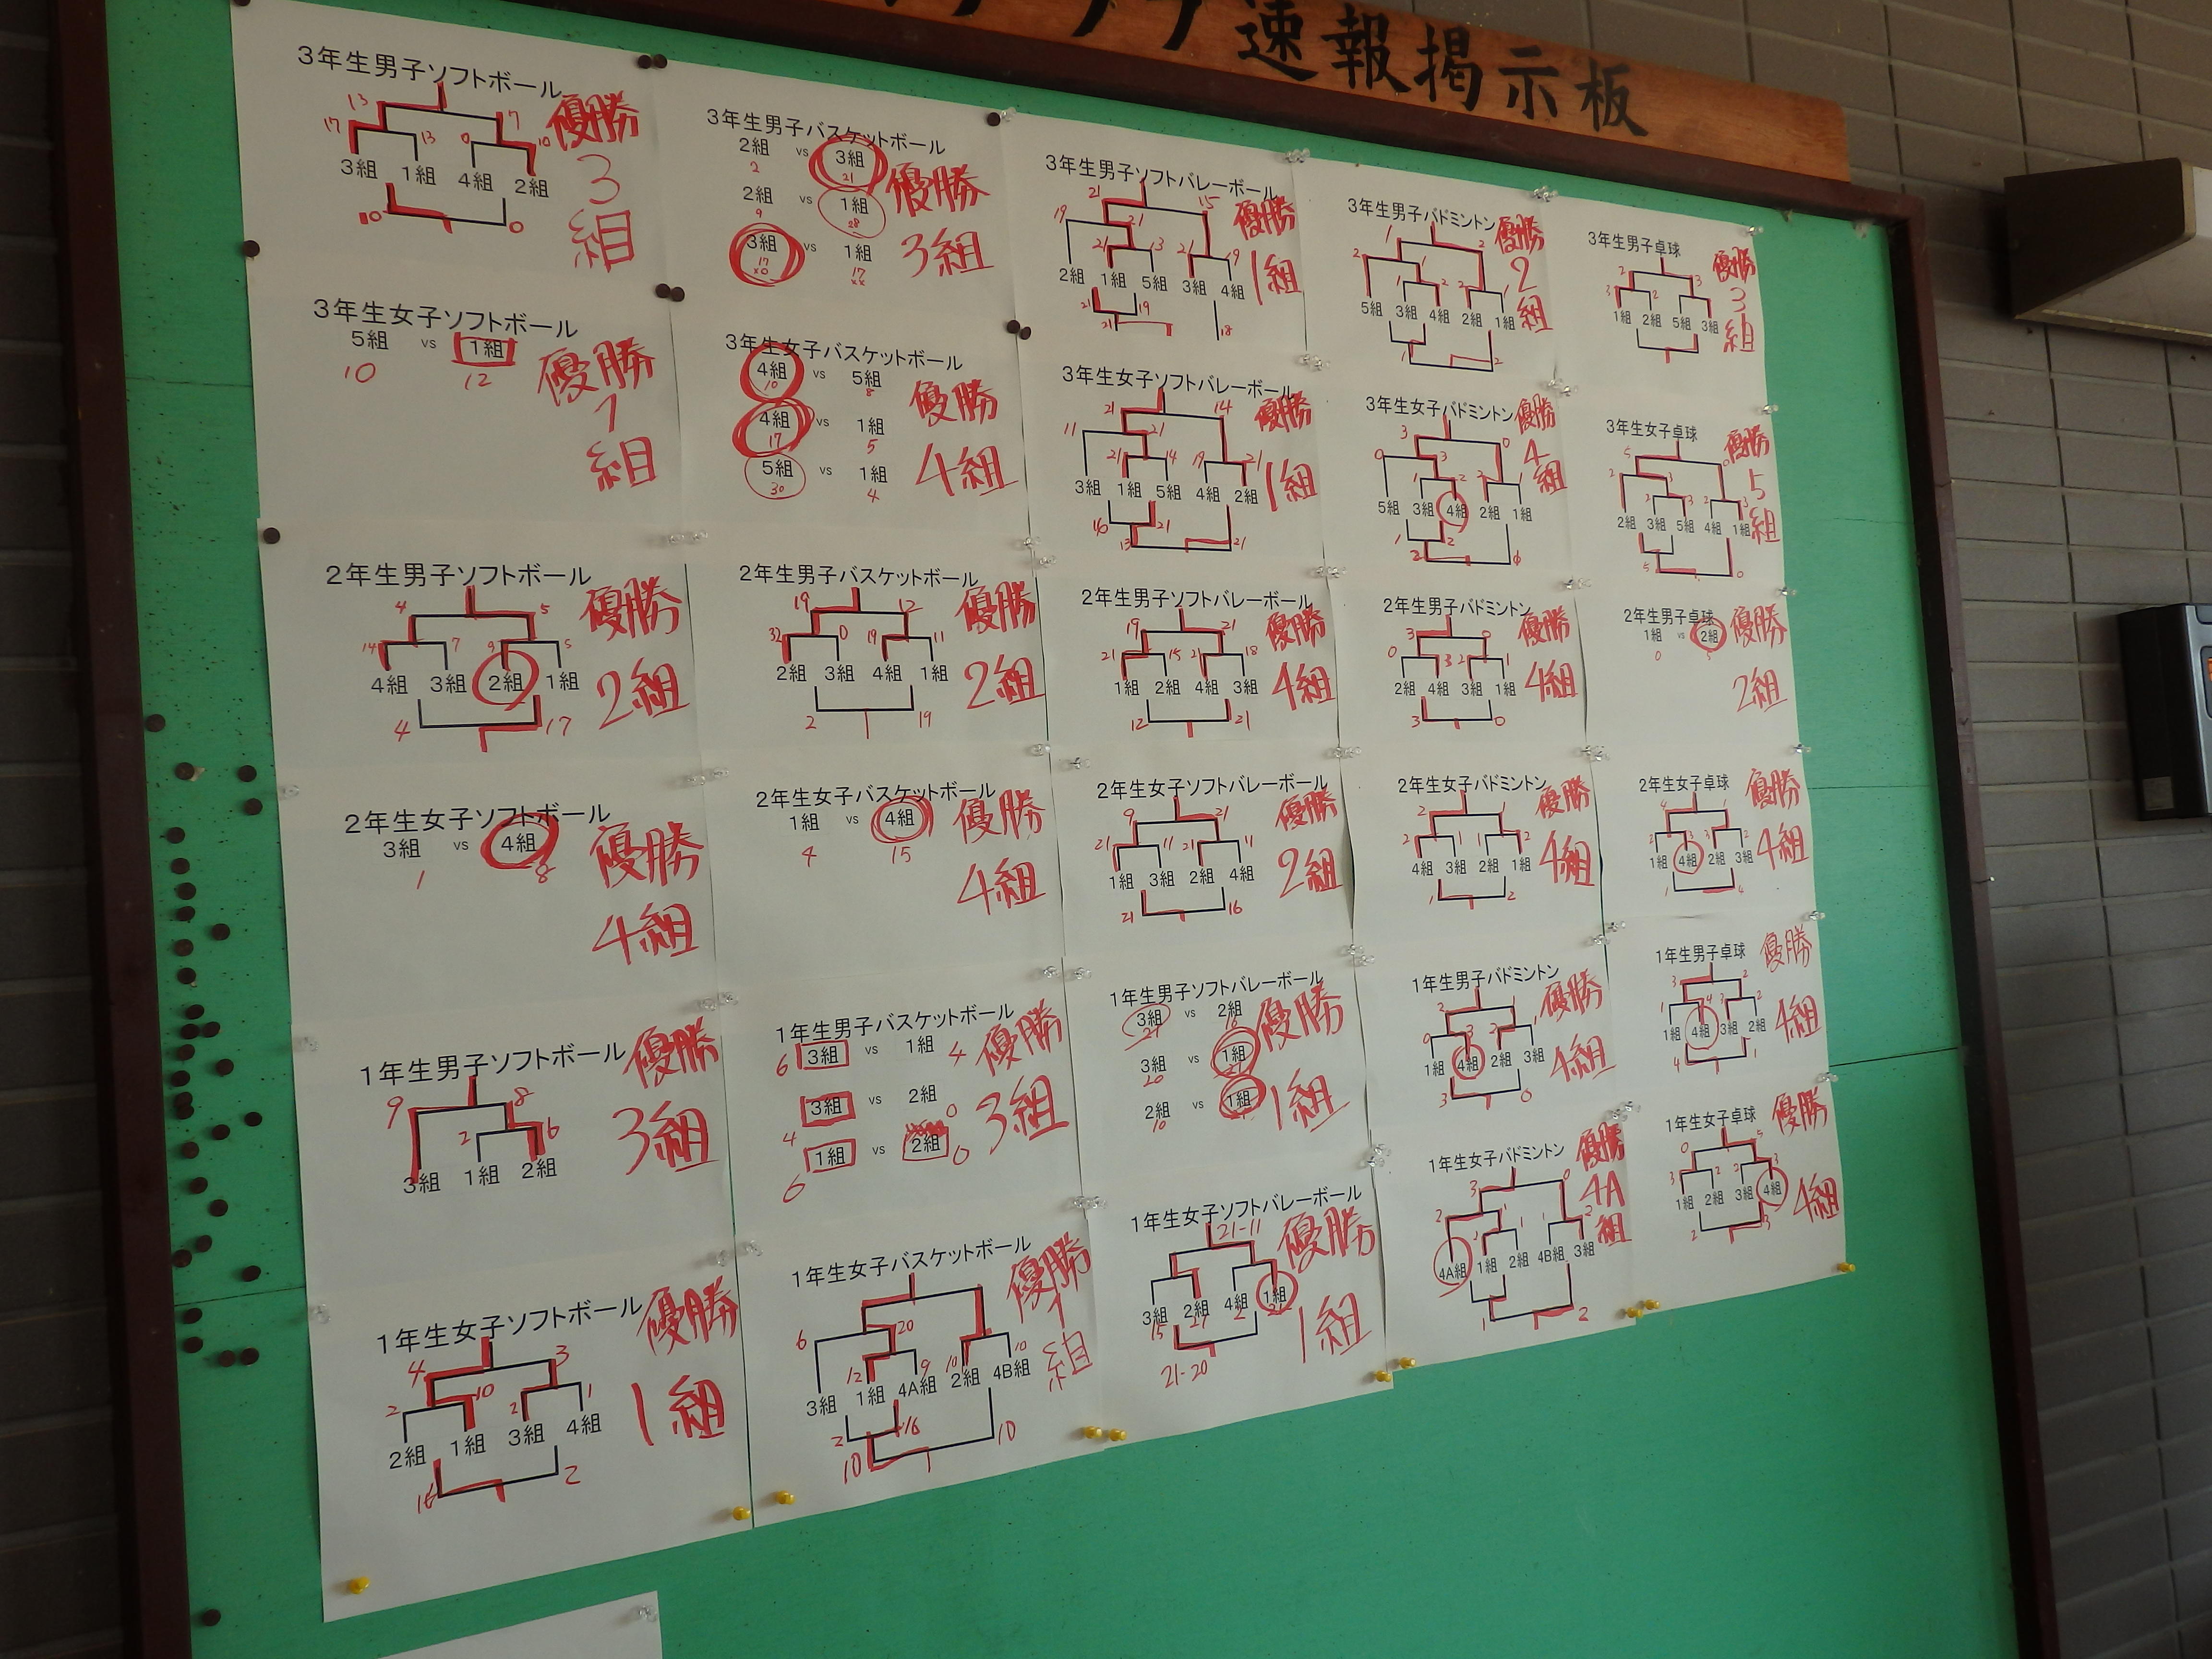 速報掲示板
3年生男子ソフトボール
優勝
3組
13 7
17 13 0 10
3組 1組 4組 2組
10 0
3年生女子ソフトボール
5組 vs 1組
10 12
優勝
1組
2年生男子ソフトボール
優勝
2組
4 5
14 7 9 5
4組 3組 2組 1組
4 17
2年生女子ソフトボール
3組 vs 4組
1 8
優勝
4組
1年生男子ソフトボール
優勝
3組
9 8
2 6
3組 1組 2組
1年生女子ソフトボール
優勝
1組
4 3
2 10 2 1
2組 1組 3組 4組
16 2
3年生男子バスケットボール
2組 vs 3組
2 21
2組 vs 1組
9 28
3組 vs 1組
17 17
優勝
3組
3年生女子バスケットボール
4組 vs 5組
10 8
4組 vs 1組
17 5
5組 vs 1組
30 4
優勝
4組
2年生男子バスケットボール
優勝
2組
19 12
32 0 19 11
2組 3組 4組 1組
2 19
2年生女子バスケットボール
1組 vs 4組
4 15
優勝
4組
1年生男子バスケットボール
6 3組 vs 1組 4
3組 vs 2組
4 0
1組 vs 2組
6 0
優勝
3組
1年生女子バスケットボール
優勝
1組
6 20
12 9 10 10
3組 1組 4A組 2組 4B組
2 16
10 10
3年生男子ソフトバレーボール
優勝
1組
21 15
19 21
21 13 21 19
2組 1組 5組 3組 4組
21 19
21 18
3年生女子ソフトバレーボール
優勝
1組
21 14
11 21
21 14 19 21
3組 1組 5組 4組 2組
16 21
13 21
2年生男子ソフトバレーボール
優勝
4組
19 21
21 15 21 18
1組 2組 4組 3組
12 21
2年生女子ソフトバレーボール
優勝
2組
9 21
21 11 21 11
1組 3組 2組 4組
21 16
1年生男子ソフトバレーボール
3組 vs 2組
21
3組 vs 1組
20 21
2組 vs 1組
10
優勝
1組
1年生女子ソフトバレーボール
優勝
1組
21-11
3組 2組 4組 1組
15 21 2 21
21-20
3年生男子バドミントン
優勝
2組
1 2
5組 3組 4組 2組 1組
1 2
3年生女子バドミントン
優勝
4組
3 0
0 3
5組 3組 4組 2組 1組
1 2
2 0
2年生男子バドミントン
優勝
4組
3 0
0 3 2 1
2組 4組 3組 1組
3 0
2年生女子バドミントン
優勝
4組
2 1
2 1 1 2
4組 3組 2組 1組
1 2
1年生男子バドミントン
優勝
4組
2 1
0 3 2 1
1組 4組 2組 3組
3 0
1年生女子バドミントン
優勝
4A組
3 0
4A組 1組 2組 4B組 3組
1 2
3年生男子卓球
優勝
3組
2 3
3 2
1組 2組 5組 3組
3年生女子卓球
優勝
5組
5 0
2組 3組 5組 4組 1組
5 0
2年生男子卓球
1組 vs 2組
0 5
優勝
2組
2年生女子卓球
優勝
4組
4 1
2 3 3 2
1組 4組 2組 3組
1 4
1年生男子卓球
優勝
4組
3 2
1 4 3 2
1組 4組 3組 2組
4 1
1年生女子卓球
優勝
4組
0 5
3 2 2 3
1組 2組 3組 4組
2 3